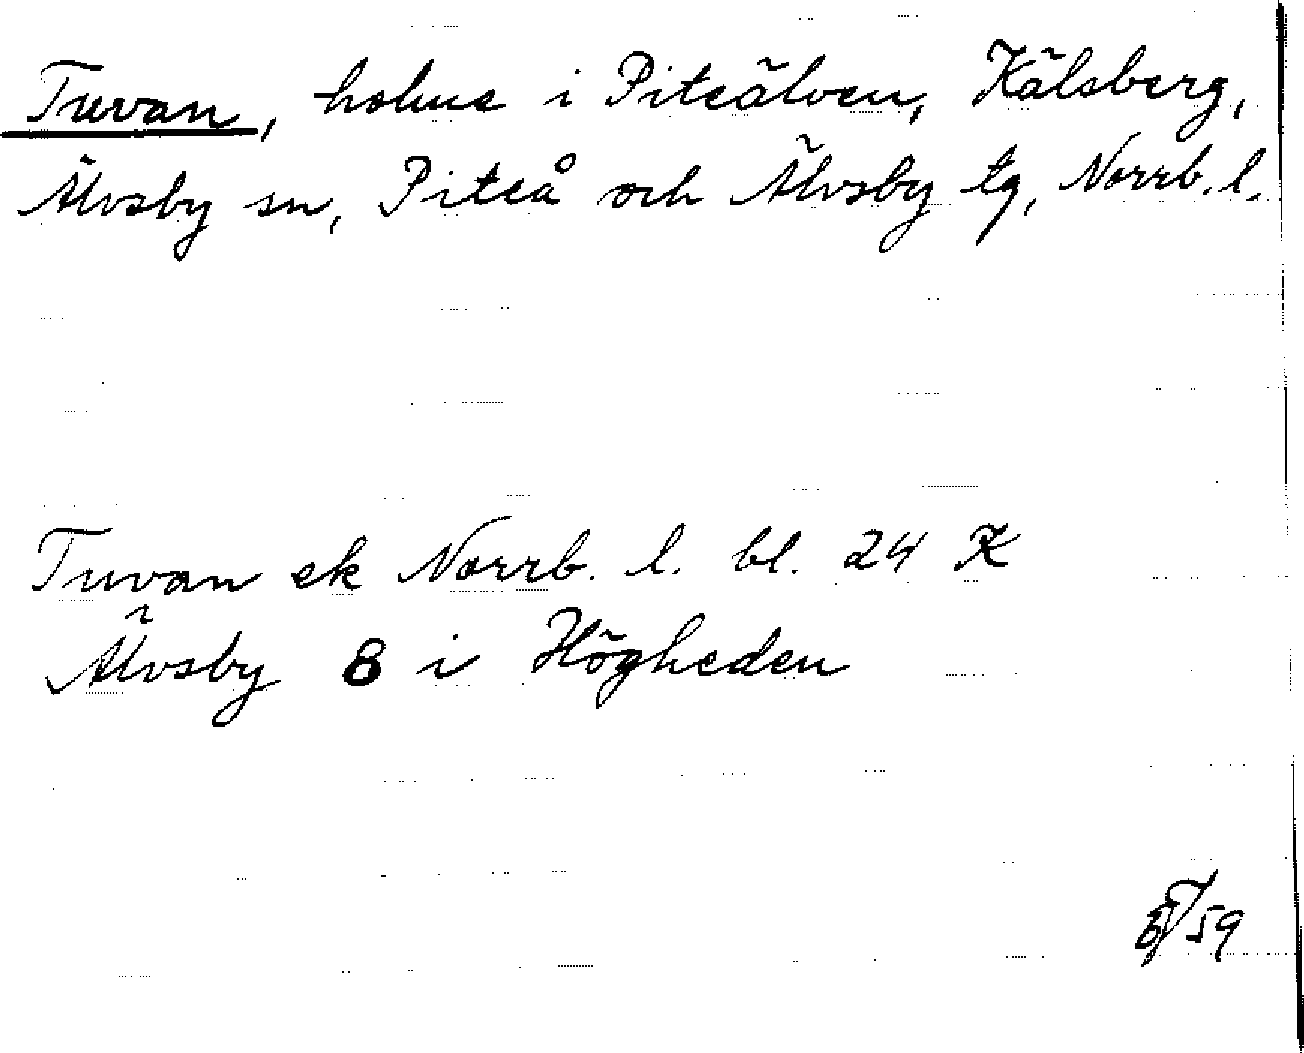 Tuvan, holme i Piteälven, Kälsberg,
Älvsby sn, Piteå och Älvsby tg, Norrb. l.
Tuvan ek Norrb. l. bl. 24 K
Älvsby 8 i Högheden
59